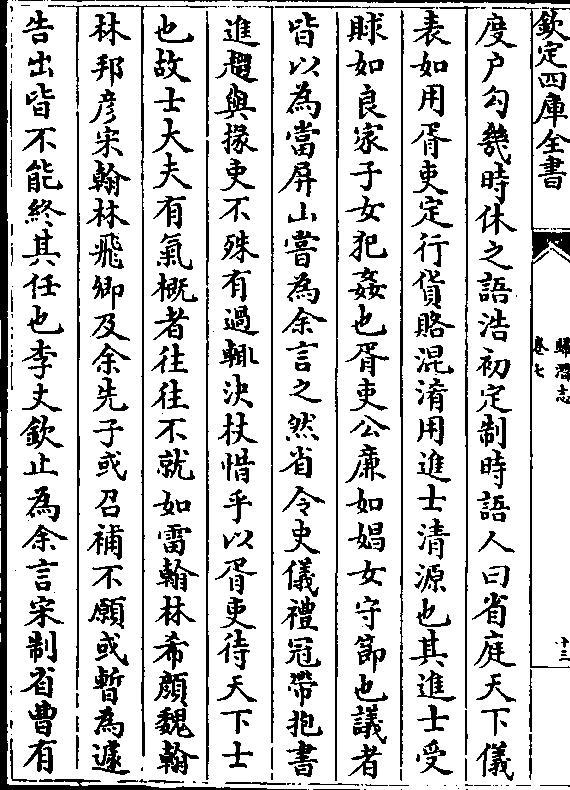 欽定四庫全書
歸潛志
卷七
十三
度户勾幾時休之語浩初定制時語人曰省庭天下儀
表如用胥吏定行貨賂混淆用進士清源也其進士受
賕如良家子女犯姦也胥吏公廉如娼女守節也議者
皆以為當屏山嘗為余言之然省令史儀禮冠帶抱書
進趨與掾吏不殊有過輒決杖惜乎以胥吏待天下士
也故士大夫有氣概者往往不就如雷翰林希顔魏翰
林邦彦宋翰林飛卿及余先子或召補不願或暫為遽
告出皆不能終其任也李丈欽止為余言宋制省曹有